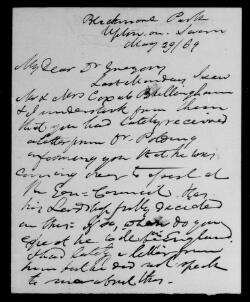 Blackmore Park
Upton on Severn
May 29/69
My Dear Dr Gregory
Last Monday I saw
Mr & Mrs Coxe at Bellingham
& I understood from them
that you had lately received
a letter from Dr. Polding
informing you that he was
coming over to speak at
the Con: Council. Has
his Lordship fully decided
on this – if so, when do you
expect he to be in England.
I had lately a letter from
him but he did not speak
to me about this.